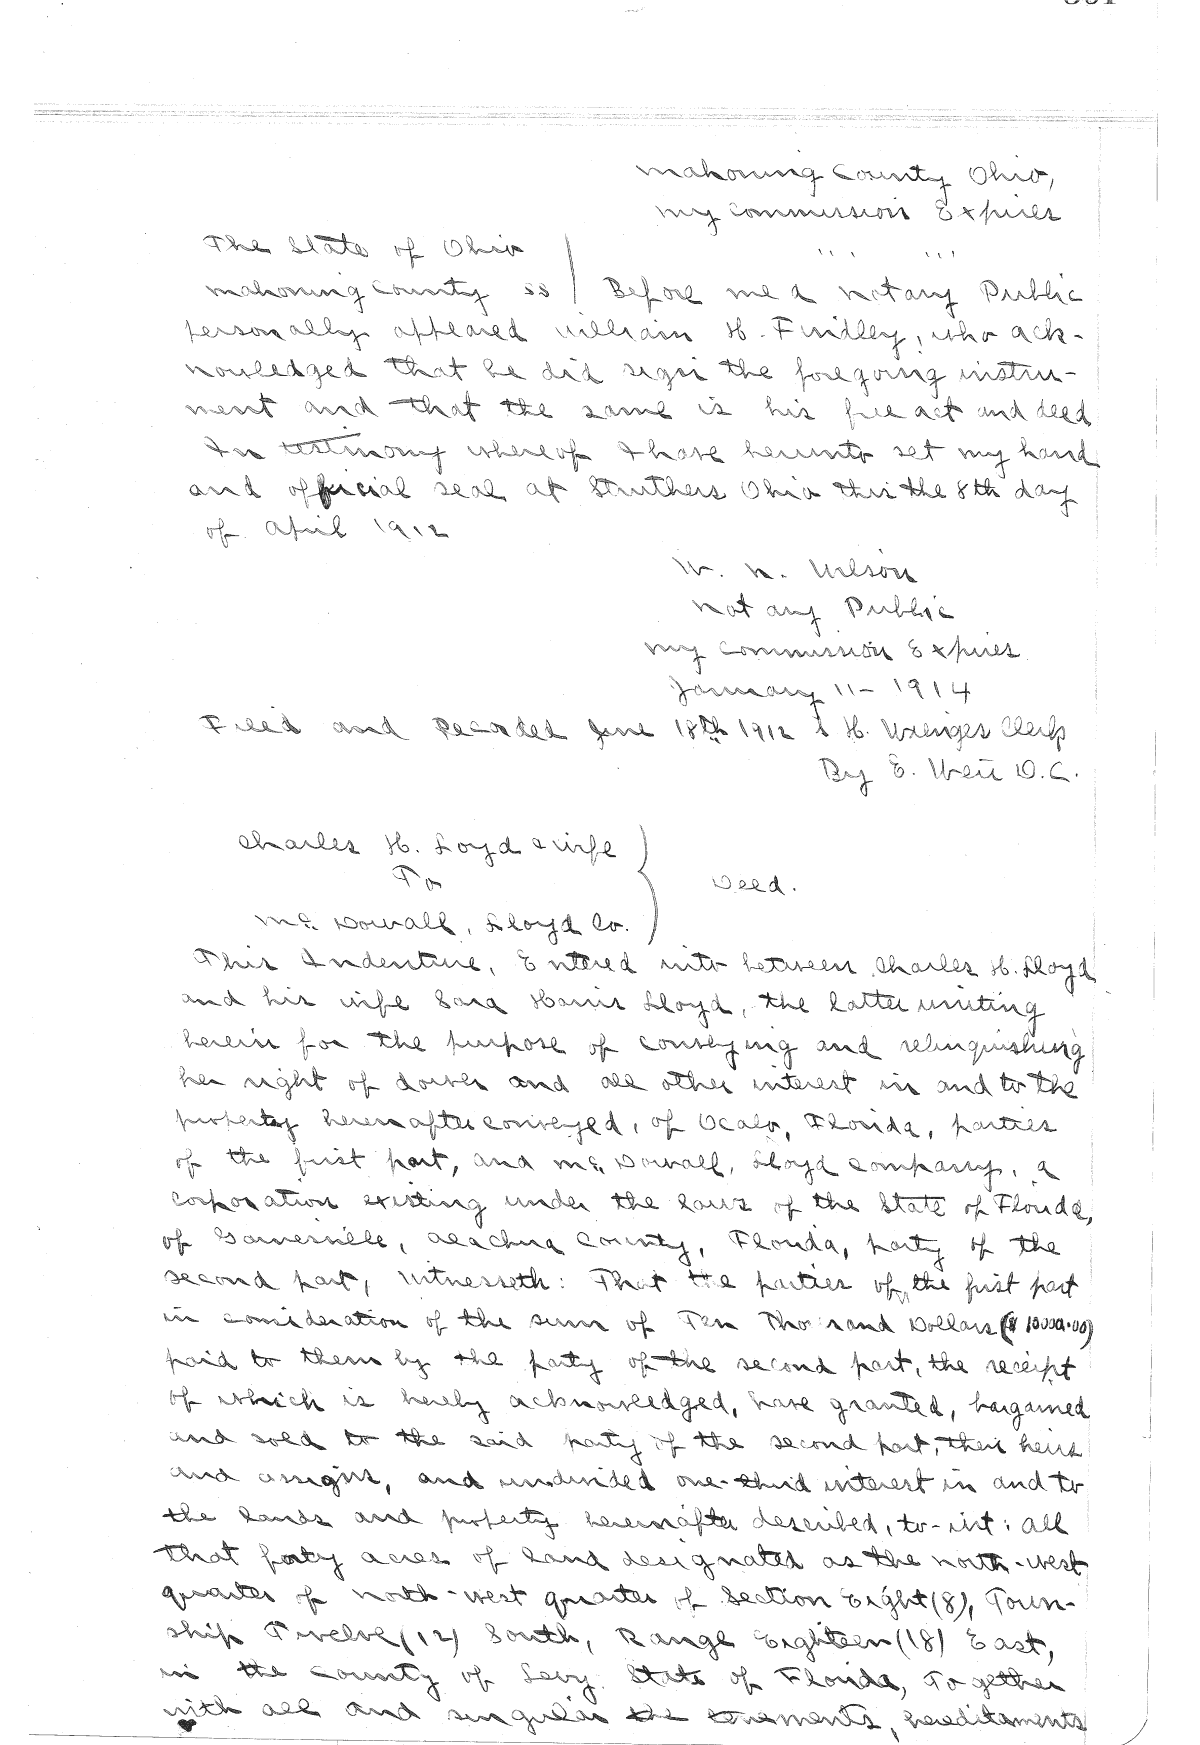 Mahoning County Ohio,
My Commission Expires
The State of Ohio
Mahoning County ss Before me a Notary Public
personally appeared William H. Findley, who ack-
nowledged that he did sign the foregoing instru-
ment and that the same is his free act and deed
In testimony whereof I have hereunto set my hand
and official seal at Struthers Ohio this the 8th day
of April 1912
W. N. Wilson
Notary Public
My Commission Expires
January 11- 1914
Filed and Recorded June 18th 1912 H. Clerk
By E. D.C.
Charles H. Loyd & wife
To
Deed.
Mc Dowall, Lloyd Co.
This Indenture, Entered into between Charles H. Lloyd
and his wife Sara Harris Lloyd, the latter uniting
herein for the purpose of conveying and relinquishing
her right of dower and all other interest in and to the
property hereinafter conveyed, of Ocala, Florida, parties
of the first part, and Mc Dowall, Lloyd Company, a
corporation existing under the laws of the State of Florida,
of Gainesville, Alachua County, Florida, party of the
second part, Witnesseth: That the parties of the first part
in consideration of the sum of Ten Thousand Dollars ($10000.00)
paid to them by the party of the second part, the receipt
of which is hereby acknowledged, have granted, bargained
and sold to the said party of the second part, their heirs
and assigns, and undivided one-third interest in and to
the lands and property hereinafter described, to-wit: All
that forty acres of land designated as the north-west
quarter of north-west quarter of Section Eight (8), Town-
ship Twelve (12) South, Range Eighteen (18) East,
in the County of Levy State of Florida, Together
with all and singular the tenements, hereditaments